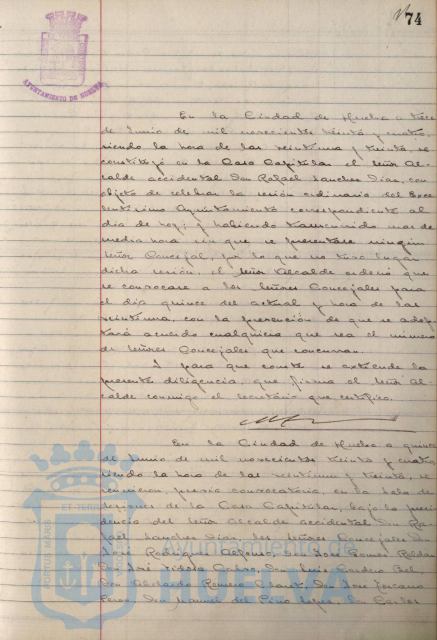 74
AYUNTAMIENTO DE HUELVA
En la Ciudad de Huelva a trece
de Junio de mil novecientos treinta y cuatro,
siendo la hora de las veintiuna y treinta, se
constituyó en la Casa Capitular el señor Al-
calde accidental Don Rafael Sanchez Diaz, con
objeto de celebrar la sesión ordinaria del Exce-
lentísimo Ayuntamiento correspondiente al
dia de hoy; y habiendo transcurrido mas de
media hora sin que se presentase ningún
señor Concejal, por lo que no tuvo lugar
dicha sesión, el señor Alcalde ordenó que
se convocase a los señores Concejales para
el dia quince del actual y hora de las
veintiuna, con la prevención de que se adop-
tará acuerdo cualquiera que sea el número
de señores Concejales que concurran.
Y para que conste se extiende la
presente diligencia, que firma el señor Al-
calde conmigo el secretario que certifico.
En la Ciudad de Huelva a quince
de Junio de mil novecientos treinta y cuatro,
siendo la hora de las veintiuna y treinta, se
reunieron, previa convocatoria, en la sala de
sesiones de la Casa Capitular, bajo la presi-
dencia del señor Alcalde accidental Don Ra-
fael Sanchez Diaz, los señores Concejales Don
José Rodriguez Alfonso, Don José Ponce Roldan
Don José Tejero Don Luis Cordero Bel,
Don Abelardo Romero Don José
Perez Don Manuel del Pino Lopez, D. Carlos
Ayuntamiento de
HUELVA
PORTUS MARIS
ET TERRAE